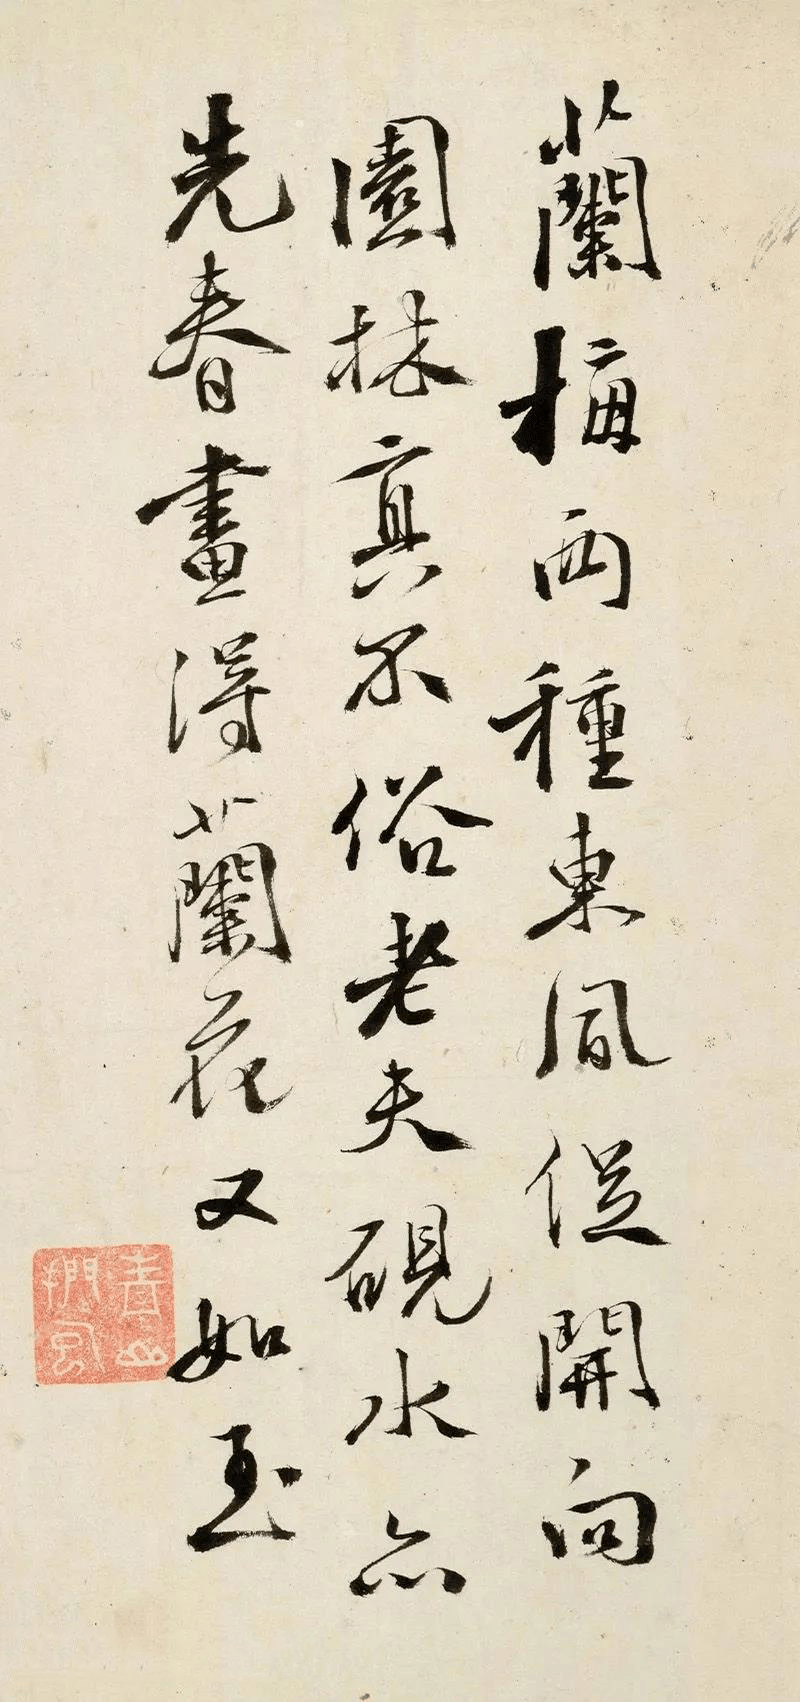 蘭梅兩種東風從開向
園林真不俗老夫硯水亦
先春畫得蘭花又如玉
青山捫虱